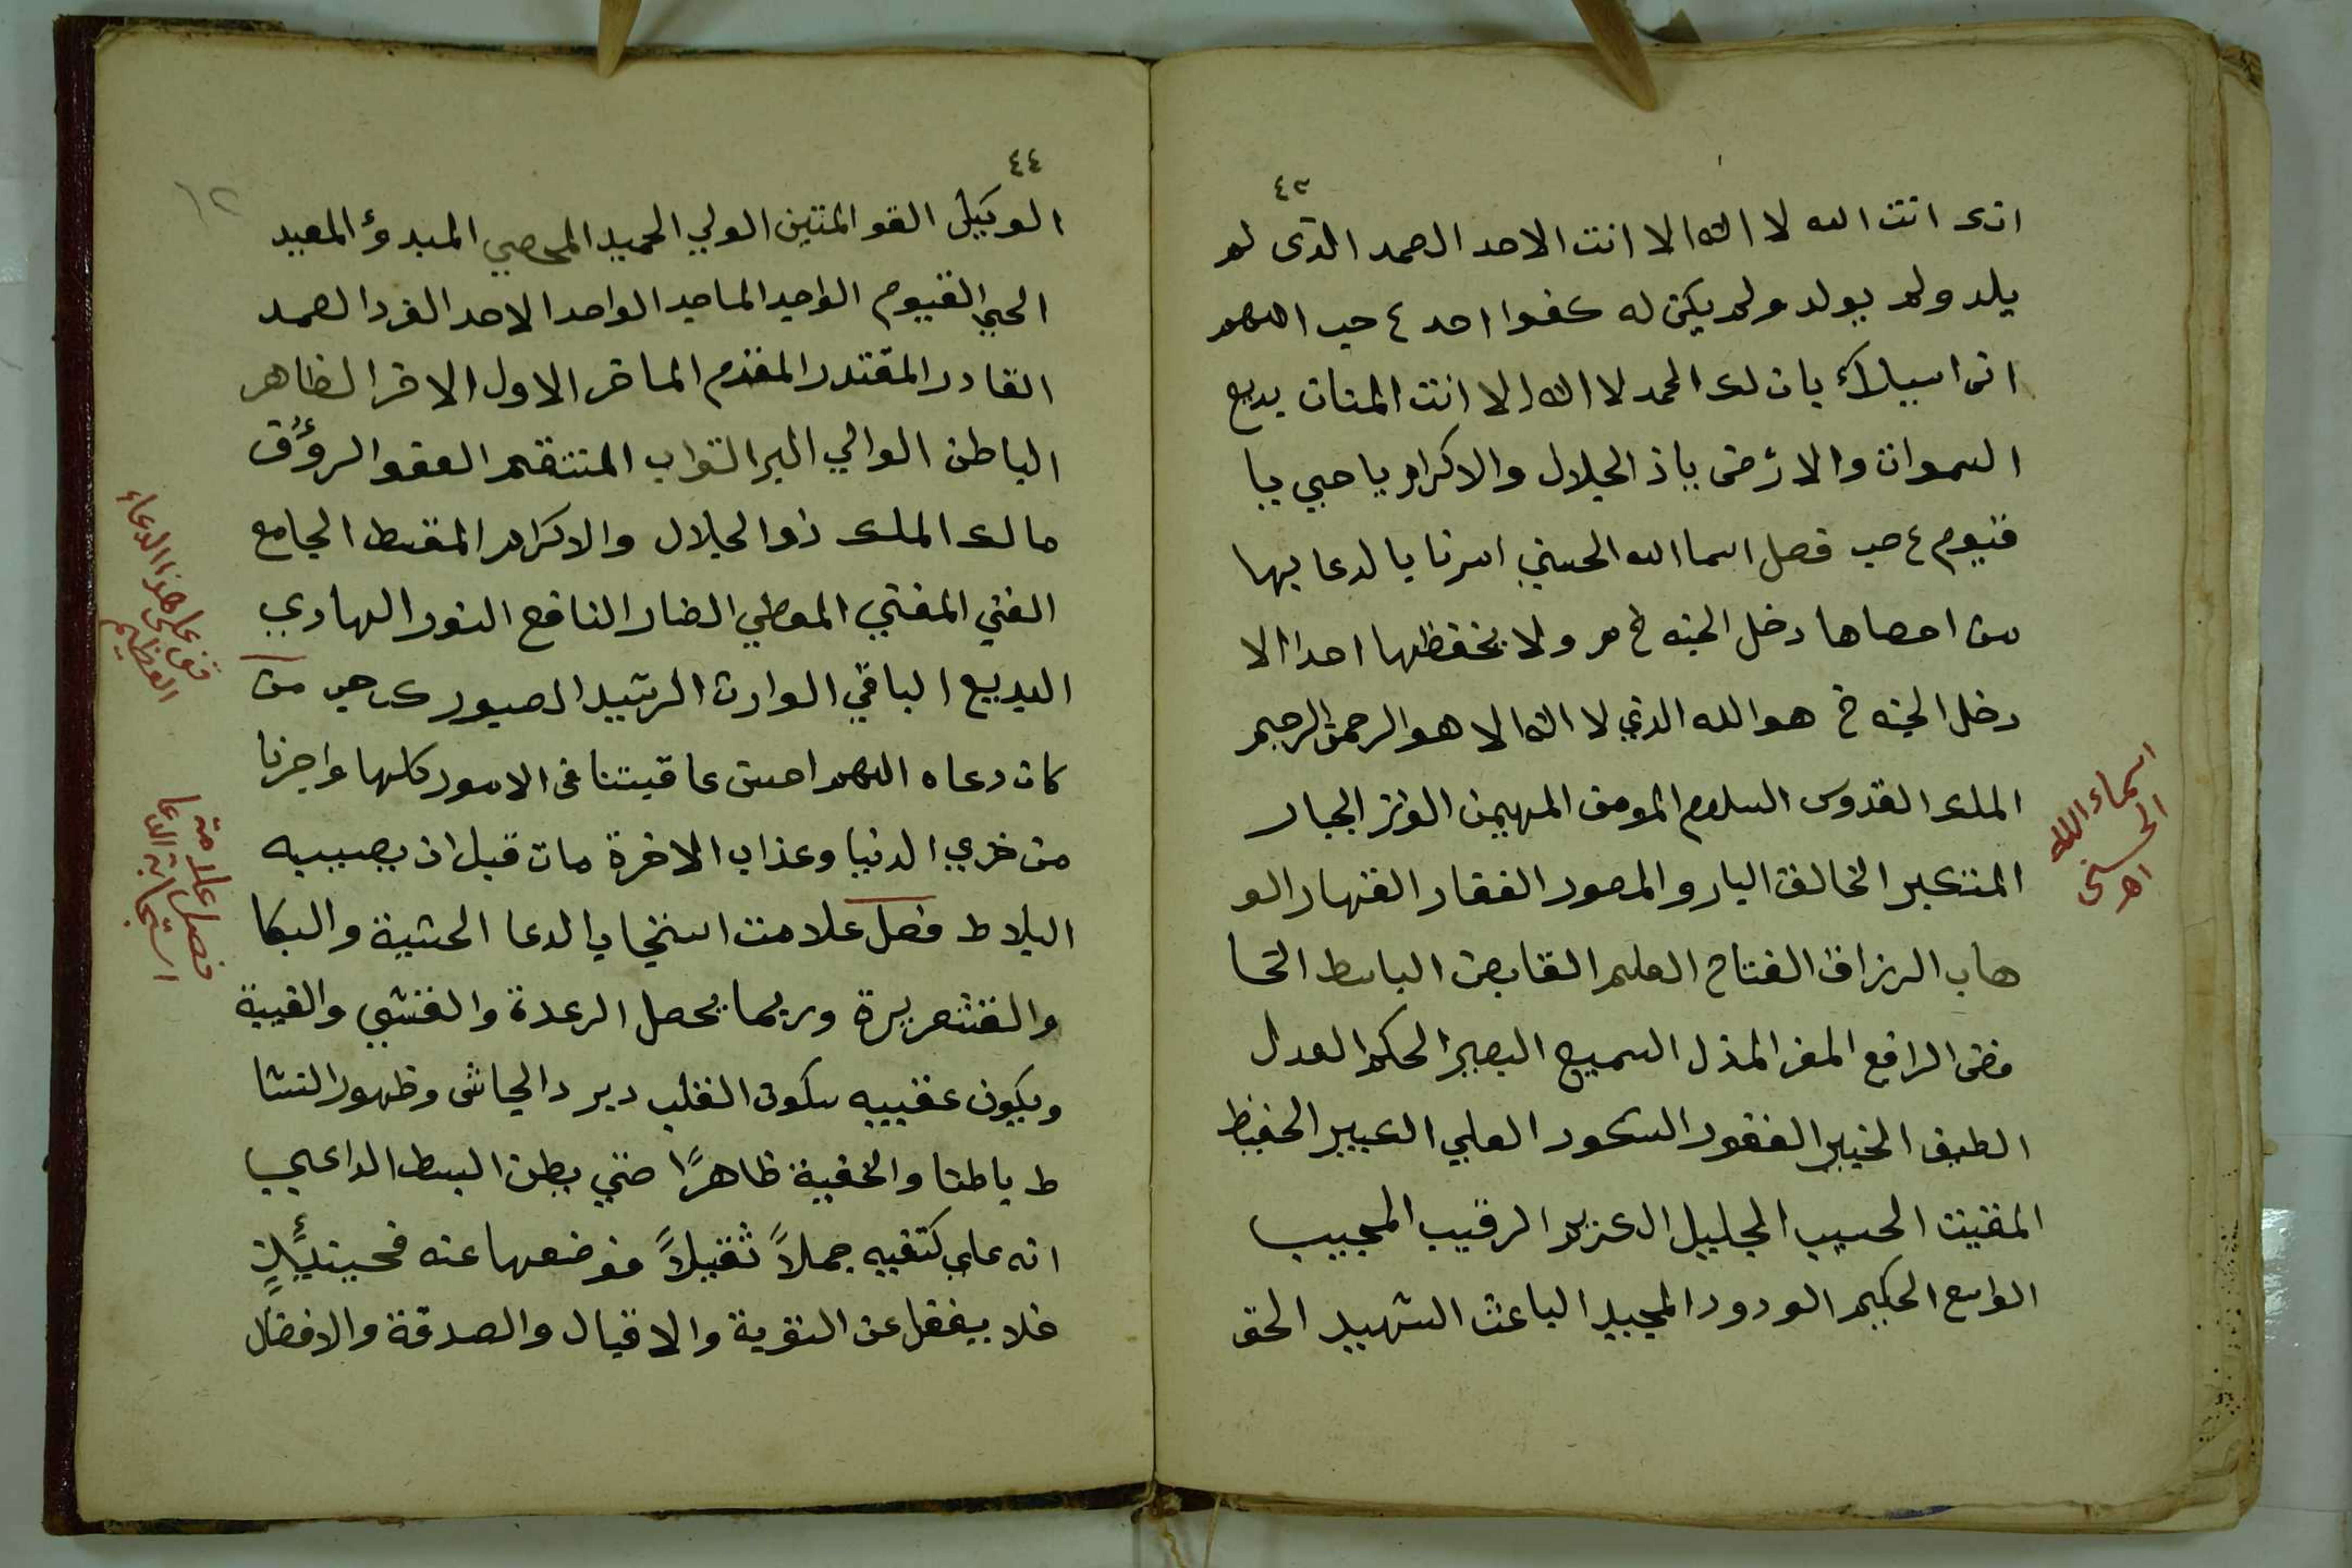 ٤٣
انك انت الله لا اله الا انت الاحد الصمد الذى لم
يلد ولم يولد ولم يكن له كفوا احد ٤ حب اللهم
انى اسيلك بان لك الحمد لا اله الا انت المنان بديع
السموات والارض ياذ الجلال والاكرام يا حيي يا
قيوم ٤ حب فصل اسما الله الحسني امرنا بالدعا بها
من احصاها دخل الجنه خ م ولا يحفظها احدا الا
دخل الجنه خ هو الله الذي لا اله الا هو الرحمن الرحيم
الملك القدوس السلام المومن المهيمن العزز الجبار
المتكبر الخالق البارو المصور الغفار القهار الو
هاب الرزاق الفتاح العليم القابض الباسط الخا
فض الرافع المعز المذل السميع البصير الحكم العدل
الطيف الخبير الغفور الشكور العلي الكبير الحفيظ
المقيت الحسيب الجليل الكريم الرقيب المجيب
الواسع الحكيم الودود المجيد الباعث الشهيد الحق
اسماء الله
الحسنى
اهـ
٤٤
١٢
الوكيل القو المتين الولي الحميد المحصي المبدؤ المعيد
الحي القيوم الواجد الماجد الواحد الاحد الفرد الصمد
القادر المقتدر المقدم الماخر الاول الاخر الظاهر
الباطن الوالي البر التواب المنتقم العفو الرؤف
مالك الملك ذو الجلال والاكرام المقسط الجامع
الغني المغني المعطي الضار النافع النور الهادي
البديع الباقي الوارث الرشيد الصبور ك حب من
كان دعاه اللهم احسن عاقبتنا فى الامور كلها واجرنا
من خزي الدنيا وعذاب الاخرة مات قبل ان يصيبه
البلا ط فصل علامت استجاب الدعا الخشية والبكا
والقشعريرة وربما يحصل الرعدة والغشي والغيبة
ويكون عقيبه سكون القلب دبرد الجاش وظهور النشا
ط باطنا والخفية ظاهرًا حتي يظن البسط الداعي
انه علي كتفيه حملاً ثقيلاً فوضعها عنه فحينئذٍ
فلا يغفل عن التوبة والاقبال والصدقة والافضال
قف على هذا الدعاء
العظيم
فصل علامة
استجابة الدعا